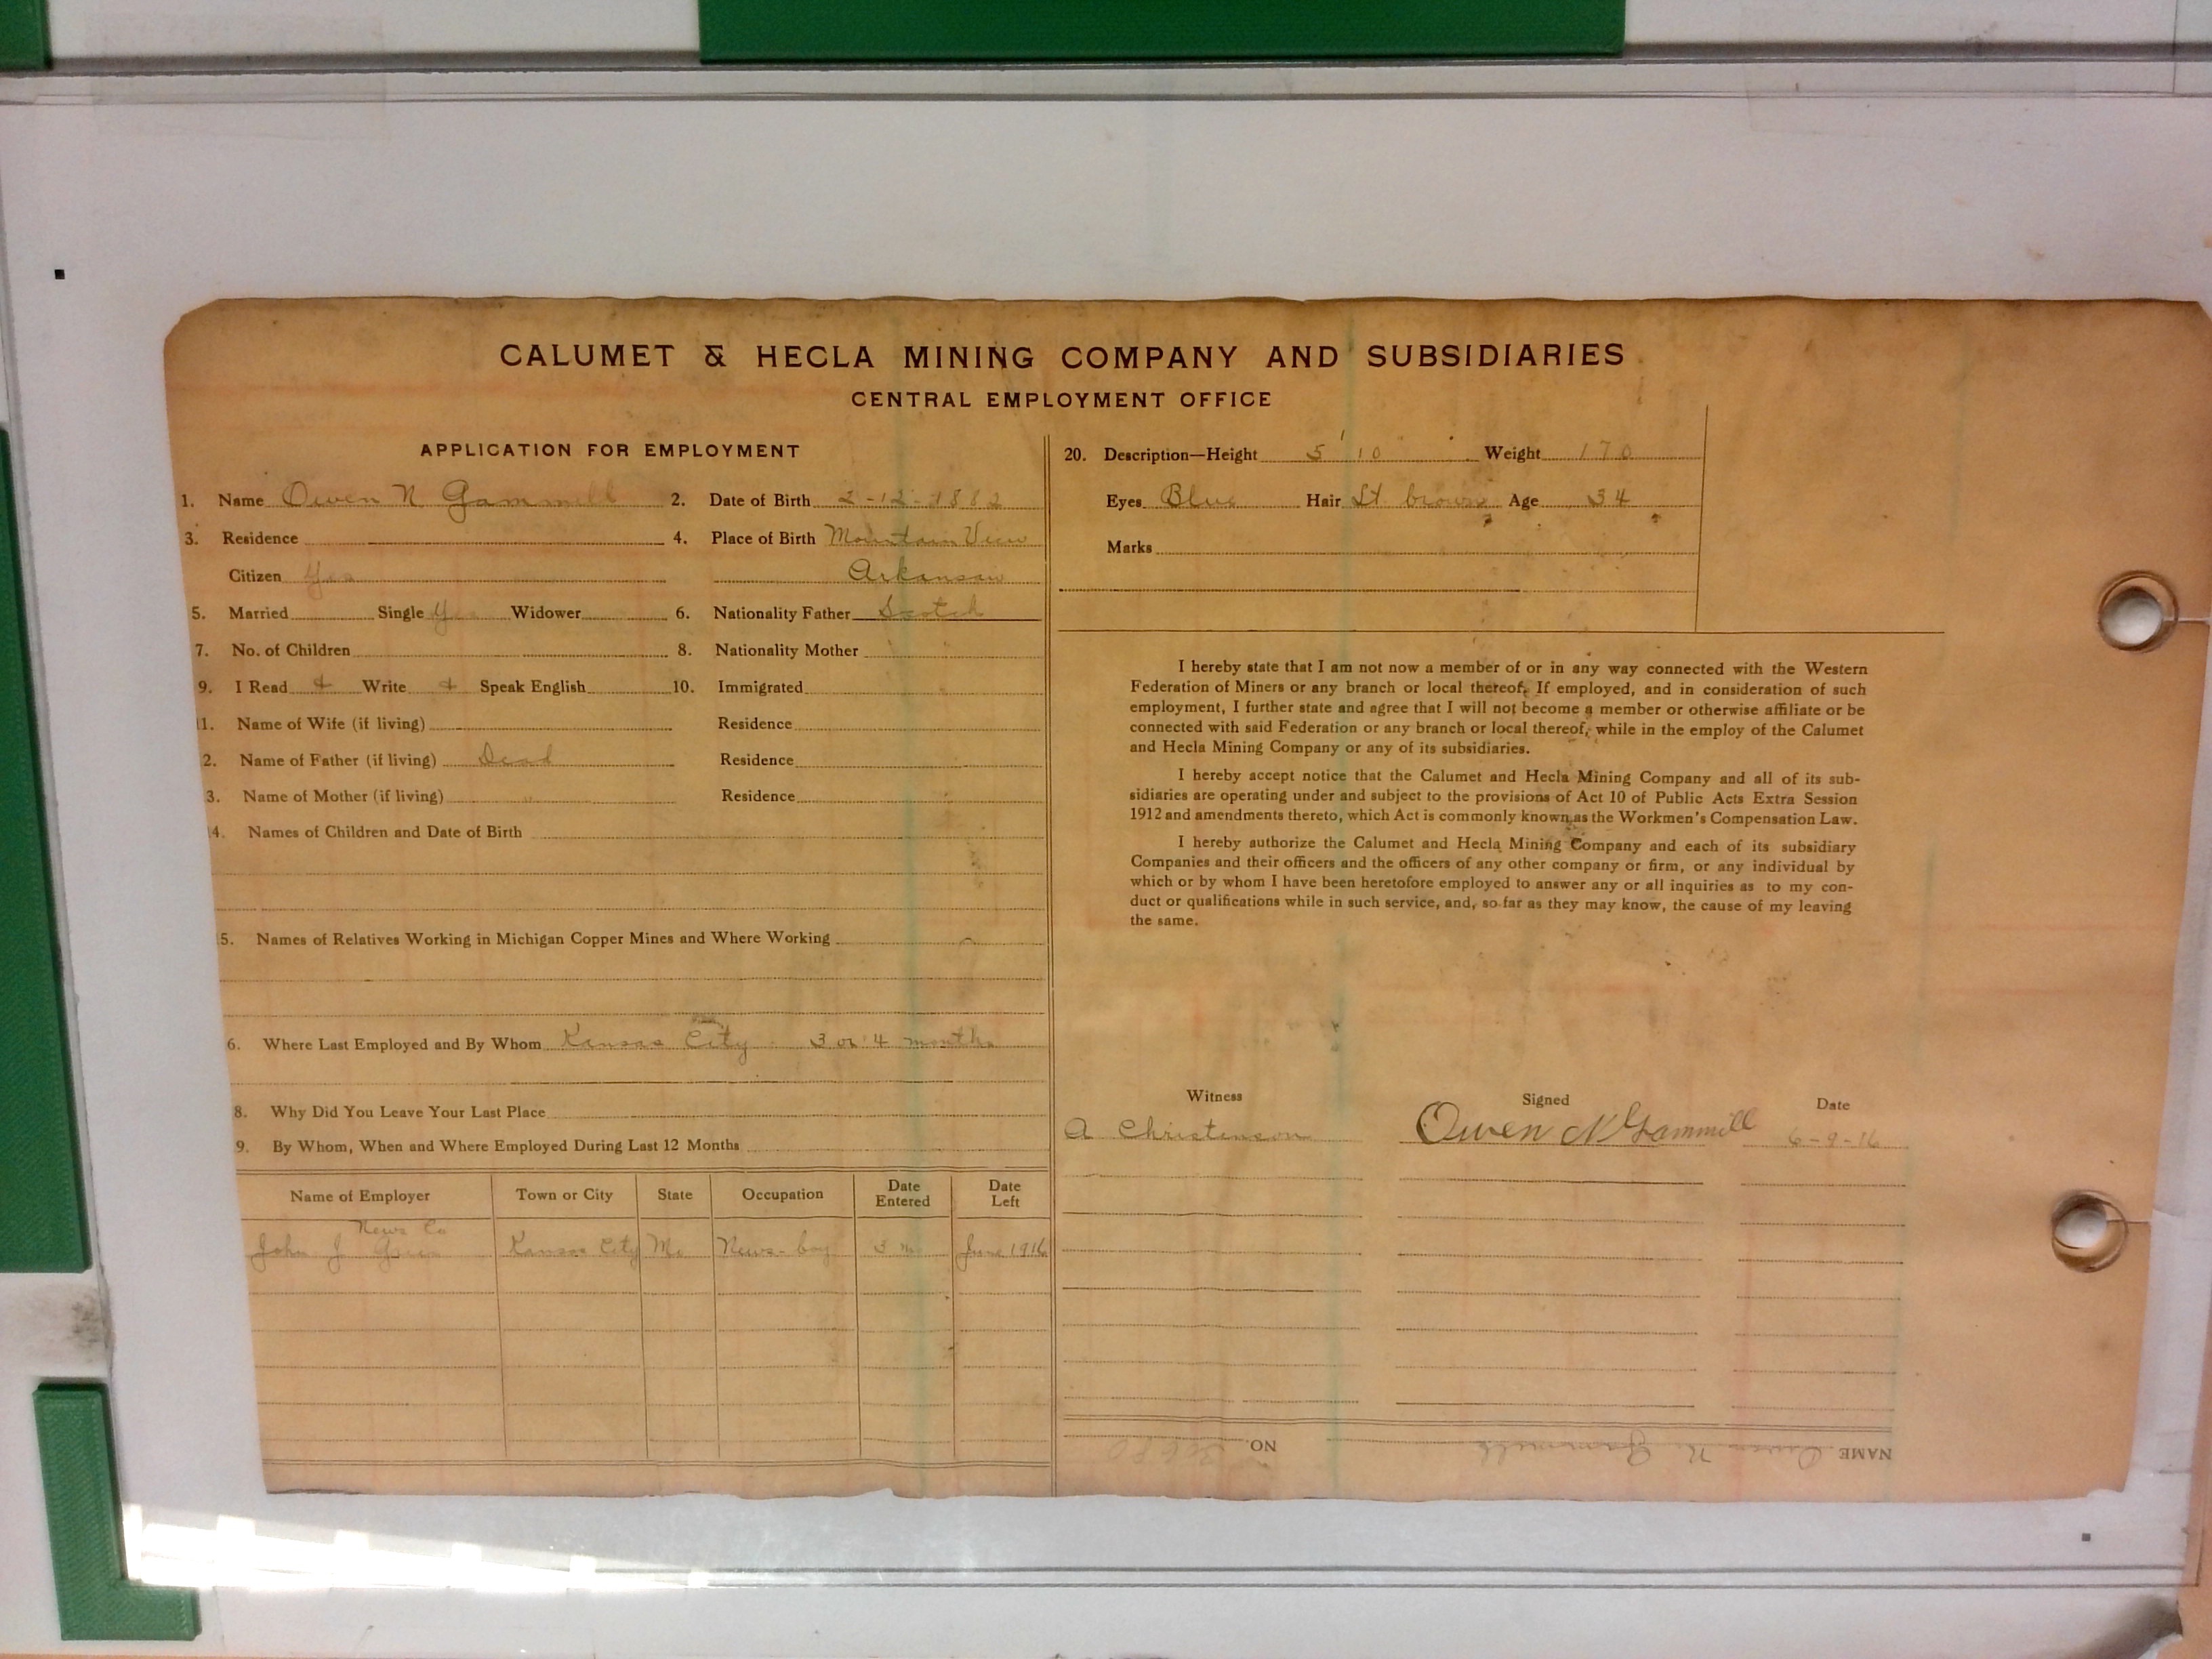 CALUMET & HECLA MINING COMPANY AND SUBSIDIARIES
CENTRAL EMPLOYMENT OFFICE
APPLICATION FOR EMPLOYMENT
1. Name Owen N Gammill 2. Date of Birth 2-12-1882
3. Residence 4. Place of Birth Mountain View
Citizen Yes Arkansaw
5. Married Single Yes Widower 6. Nationality Father Scotch
7. No. of Children 8. Nationality Mother
9. I Read + Write + Speak English 10. Immigrated
11. Name of Wife (if living) Residence
2. Name of Father (if living) Dead Residence
3. Name of Mother (if living) " Residence
14. Names of Children and Date of Birth
5. Names of Relatives Working in Michigan Copper Mines and Where Working
6. Where Last Employed and By Whom Kansas City 3 or 4 months
8. Why Did You Leave Your Last Place
9. By Whom, When and Where Employed During Last 12 Months
Name of Employer Town or City State Occupation Date Entered Date Left
News Co
John J Kansas City Mo News-boy 3 m June 1916
20. Description—Height 5' 10 Weight 170
Eyes Blue Hair Lt. brown Age 34
Marks
I hereby state that I am not now a member of or in any way connected with the Western
Federation of Miners or any branch or local thereof. If employed, and in consideration of such
employment, I further state and agree that I will not become a member or otherwise affiliate or be
connected with said Federation or any branch or local thereof, while in the employ of the Calumet
and Hecla Mining Company or any of its subsidiaries.
I hereby accept notice that the Calumet and Hecla Mining Company and all of its sub-
sidiaries are operating under and subject to the provisions of Act 10 of Public Acts Extra Session
1912 and amendments thereto, which Act is commonly known as the Workmen's Compensation Law.
I hereby authorize the Calumet and Hecla Mining Company and each of its subsidiary
Companies and their officers and the officers of any other company or firm, or any individual by
which or by whom I have been heretofore employed to answer any or all inquiries as to my con-
duct or qualifications while in such service, and, so far as they may know, the cause of my leaving
the same.
Witness Signed Date
A Christenson Owen N Gammill 6-9-16
NAME Owen N. Gammill NO.